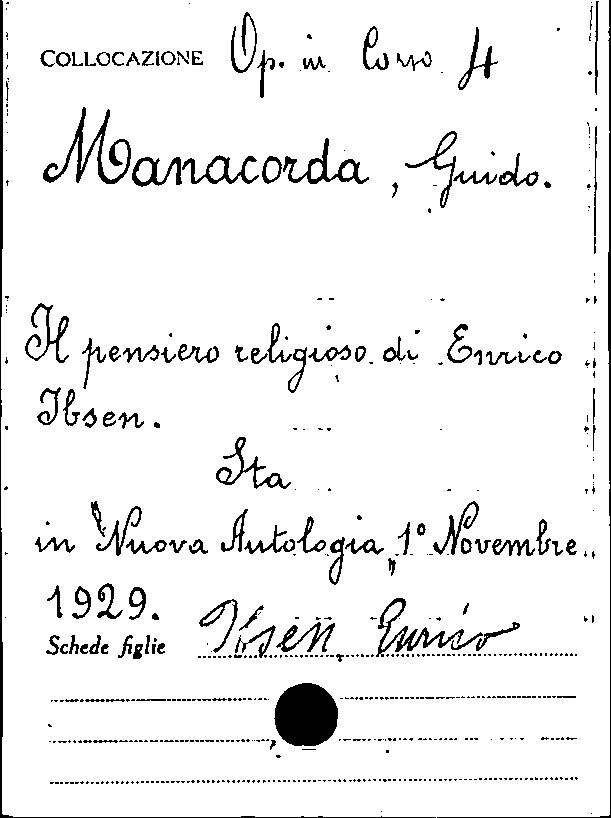 COLLOCAZIONE Op. in Corso 4
Manacorda, Guido.
Il pensiero religioso di Enrico
Ibsen.
Sta
in "Nuova Antologia„ 1° Novembre
1929.
Schede figlie Ibsen, Enrico